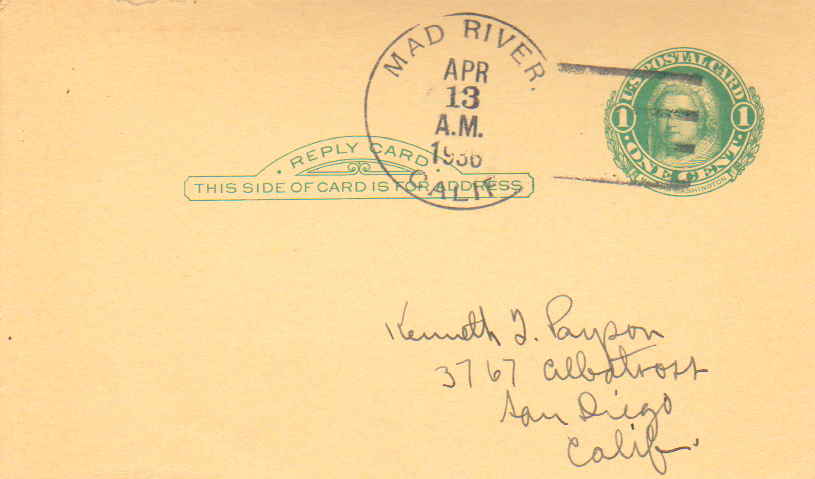 MAD RIVER.
APR
13
A.M.
1936
CALIF
U.S. POSTAL CARD
1 1
ONE CENT
WASHINGTON
REPLY CARD
THIS SIDE OF CARD IS FOR ADDRESS
Kenneth J. Payson
3767 Albatross
San Diego
Calif.